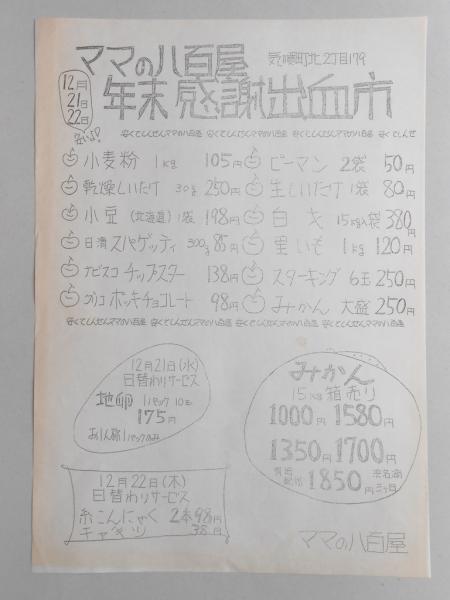 ママの八百屋 町北2丁目179
12月21日22日
年末感謝出血市
安いよ!
安くてしんせんママの八百屋 安くてしんせんママの八百屋 安くてしんせんママの八百屋 安くてしんせ
小麦粉 1kg 105円
乾燥しいたけ 30g 250円
小豆(北海道)1袋 198円
日清スパゲッティ 300g 85円
ナビスコ チップスター 138円
グリコ ポッキチョコレート 98円
ピーマン 2袋 50円
生しいたけ 1袋 80円
白菜 15kg入袋 380円
里いも 1kg 120円
スターキング 6玉 250円
みかん 大盛 250円
安くてしんせんママの八百屋 安くてしんせんママの八百屋 安くてしんせんママの八百屋 安くてしんせんママの八百屋
12月21日(水)
日替わりサービス
地卵 1パック 10コ
175円
お1人様1パックのみ
12月22日(木)
日替わりサービス
糸こんにゃく 2本98円
キャベツ 38円
みかん
15kg箱売り
1000円 1580円
1350円 1700円
1850円
ママの八百屋